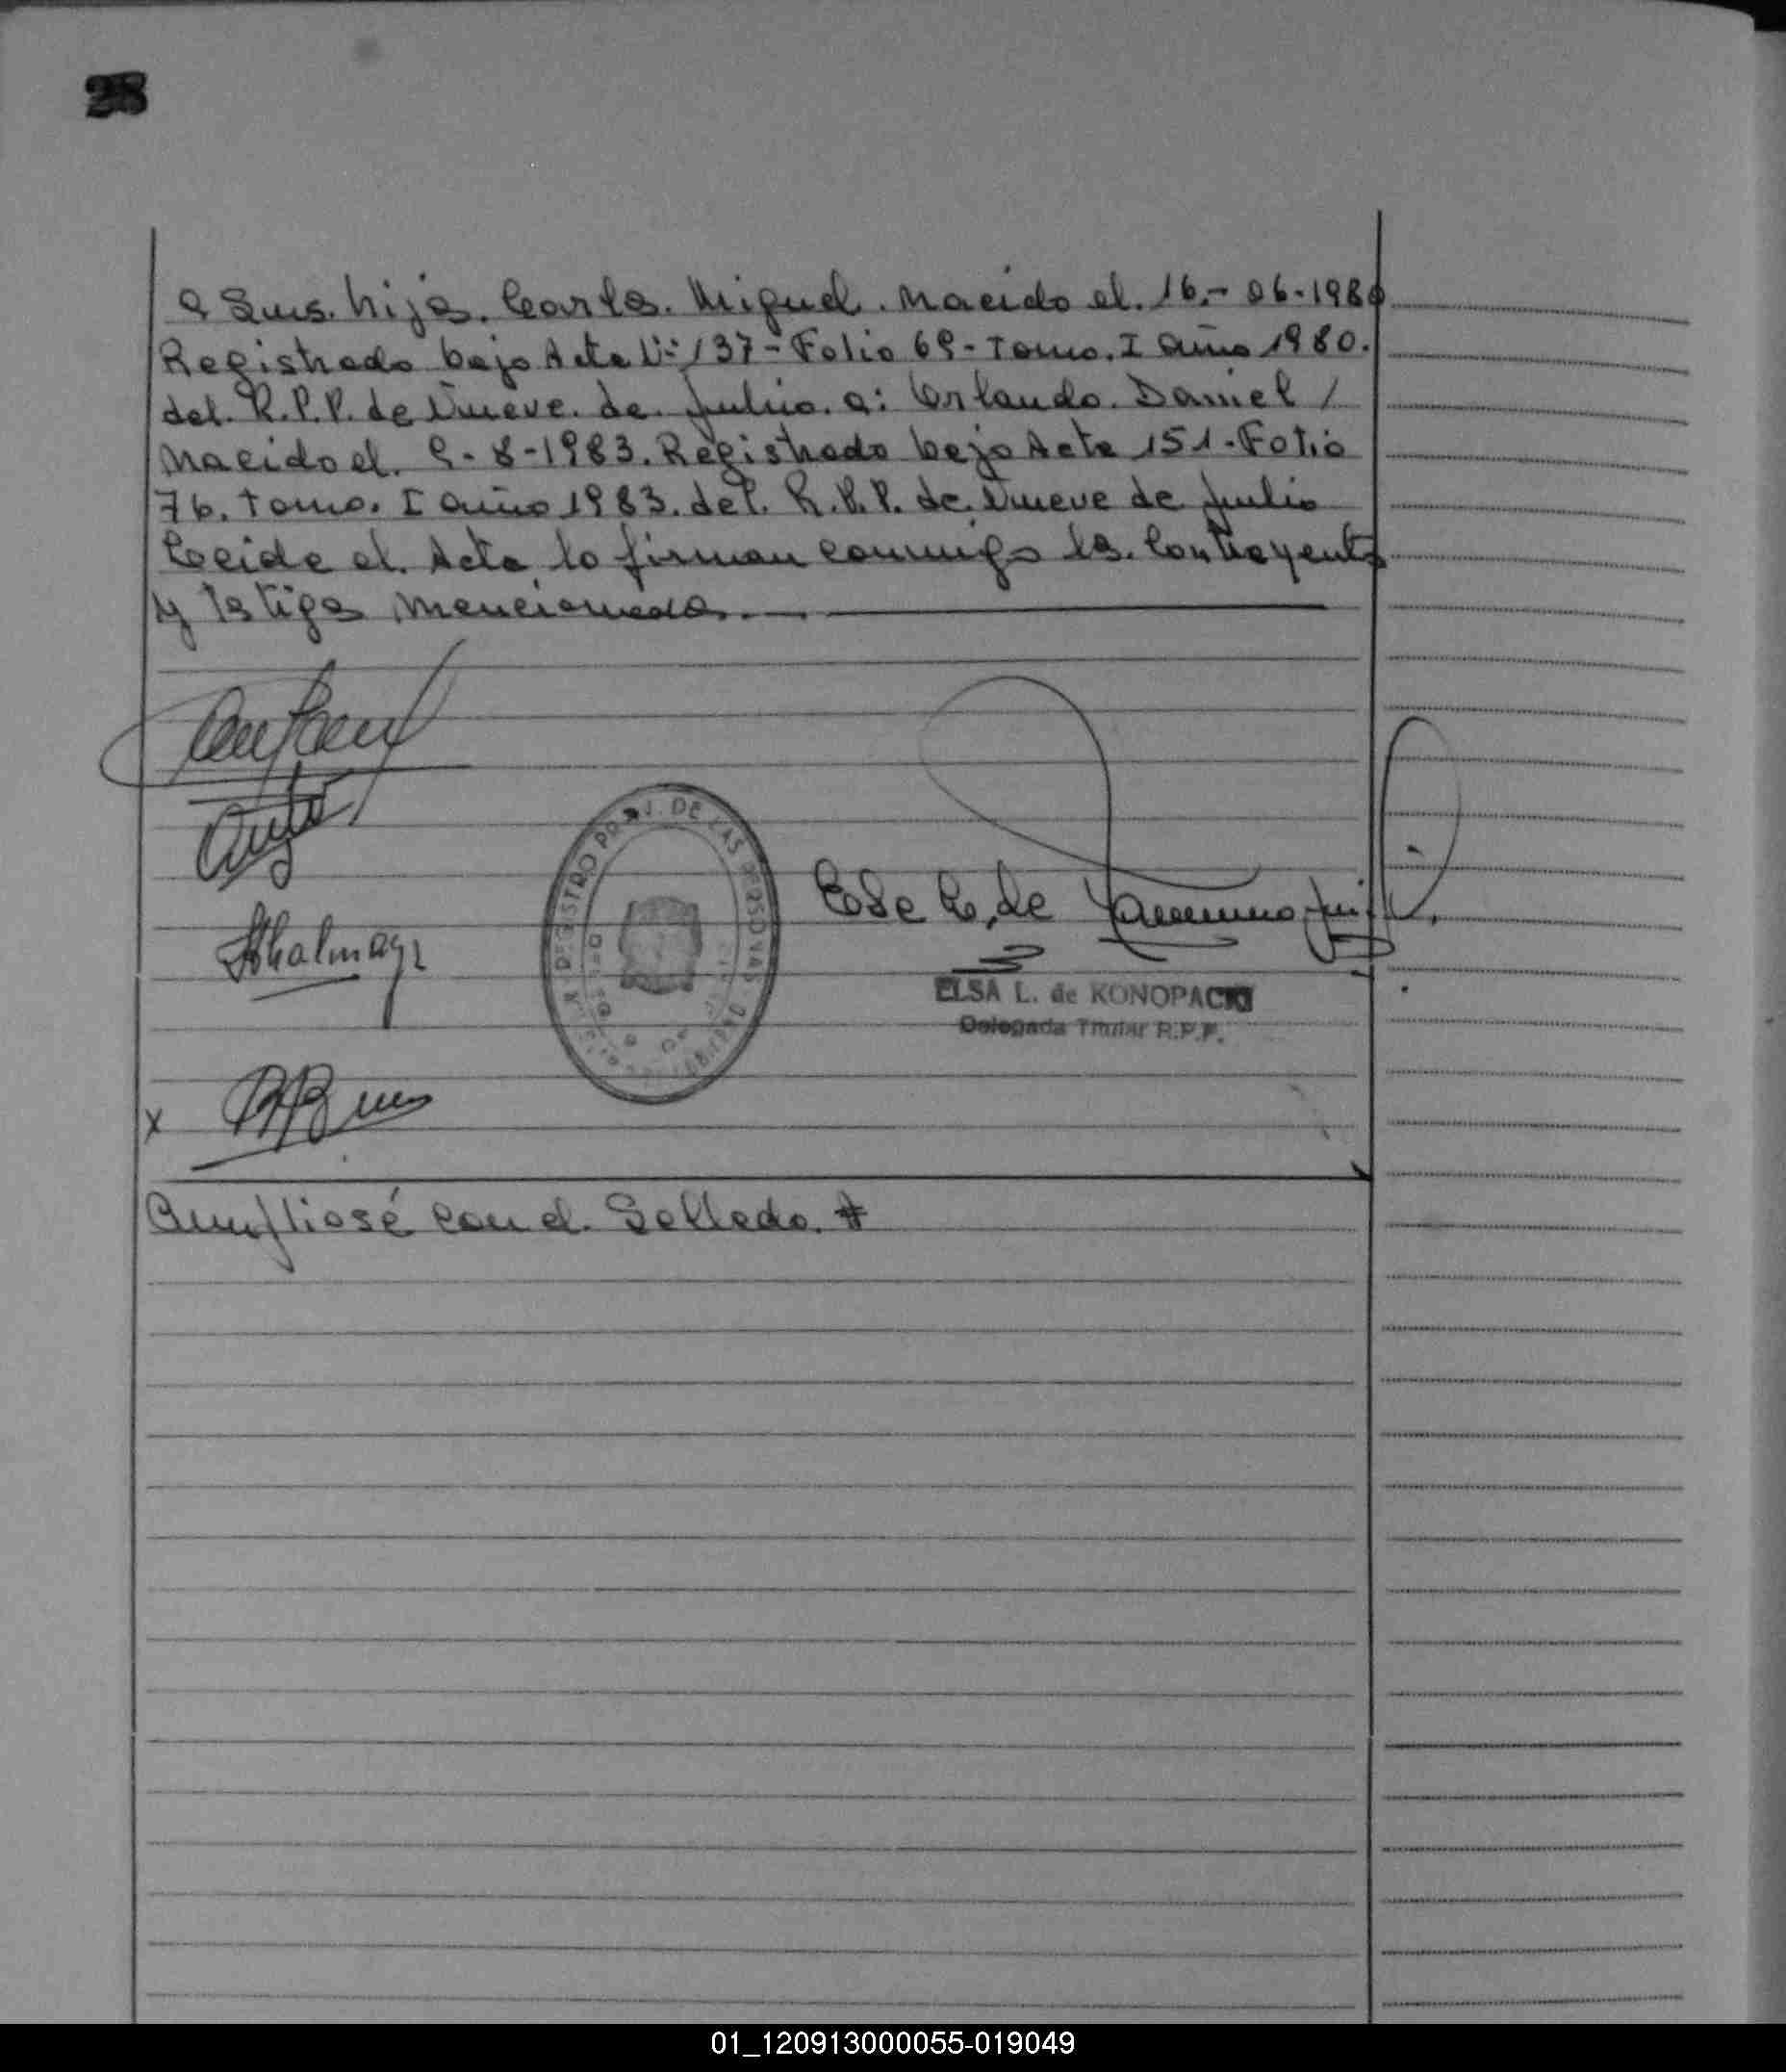 28
a Sus. hijos. Carlos. Miguel. nacido el. 16.- 06-1980
Registrado bajo Acta Nº 137- Folio 69- Tomo. I año 1980.
del. R.P.P. de Nueve. de. Julio. a: Orlando. Daniel /
nacido el. 9-8-1983. Registrado bajo Acta 151-Folio
76. Tomo. I año 1983. del. R.P.P. de. Nueve de Julio
Leida el. Acta, lo firman conmigo los. Contrayentes
y Testigos mencionados.
REGISTRO PROV. DE LAS PERSONAS
Elsa L. de
ELSA L. de KONOPACKI
Delegada Titular R.P.P.
x
Cumpliose con el. Sellado.
01_120913000055-019049